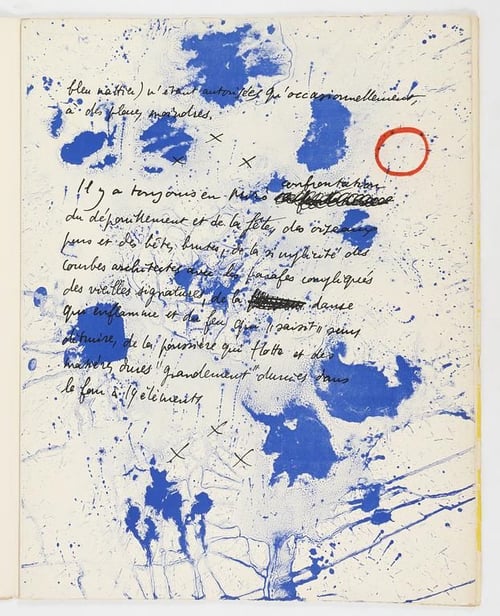 bleu matties) n'étant autorisées qu'occasionnellement,
à des places moindres.
Il y a toujours en Miró confrontation
du dépouillement et de la fête, des oiseaux
purs et des bêtes brutes, de la simplicité des
courbes architectes avec les parafes compliqués
des vieilles signatures, de la danse
qui enflamme et du feu qui "saisit" sans
détruire, de la poussière qui flotte et des
matières dures "grandement" durcies dans
le four à 19 éléments